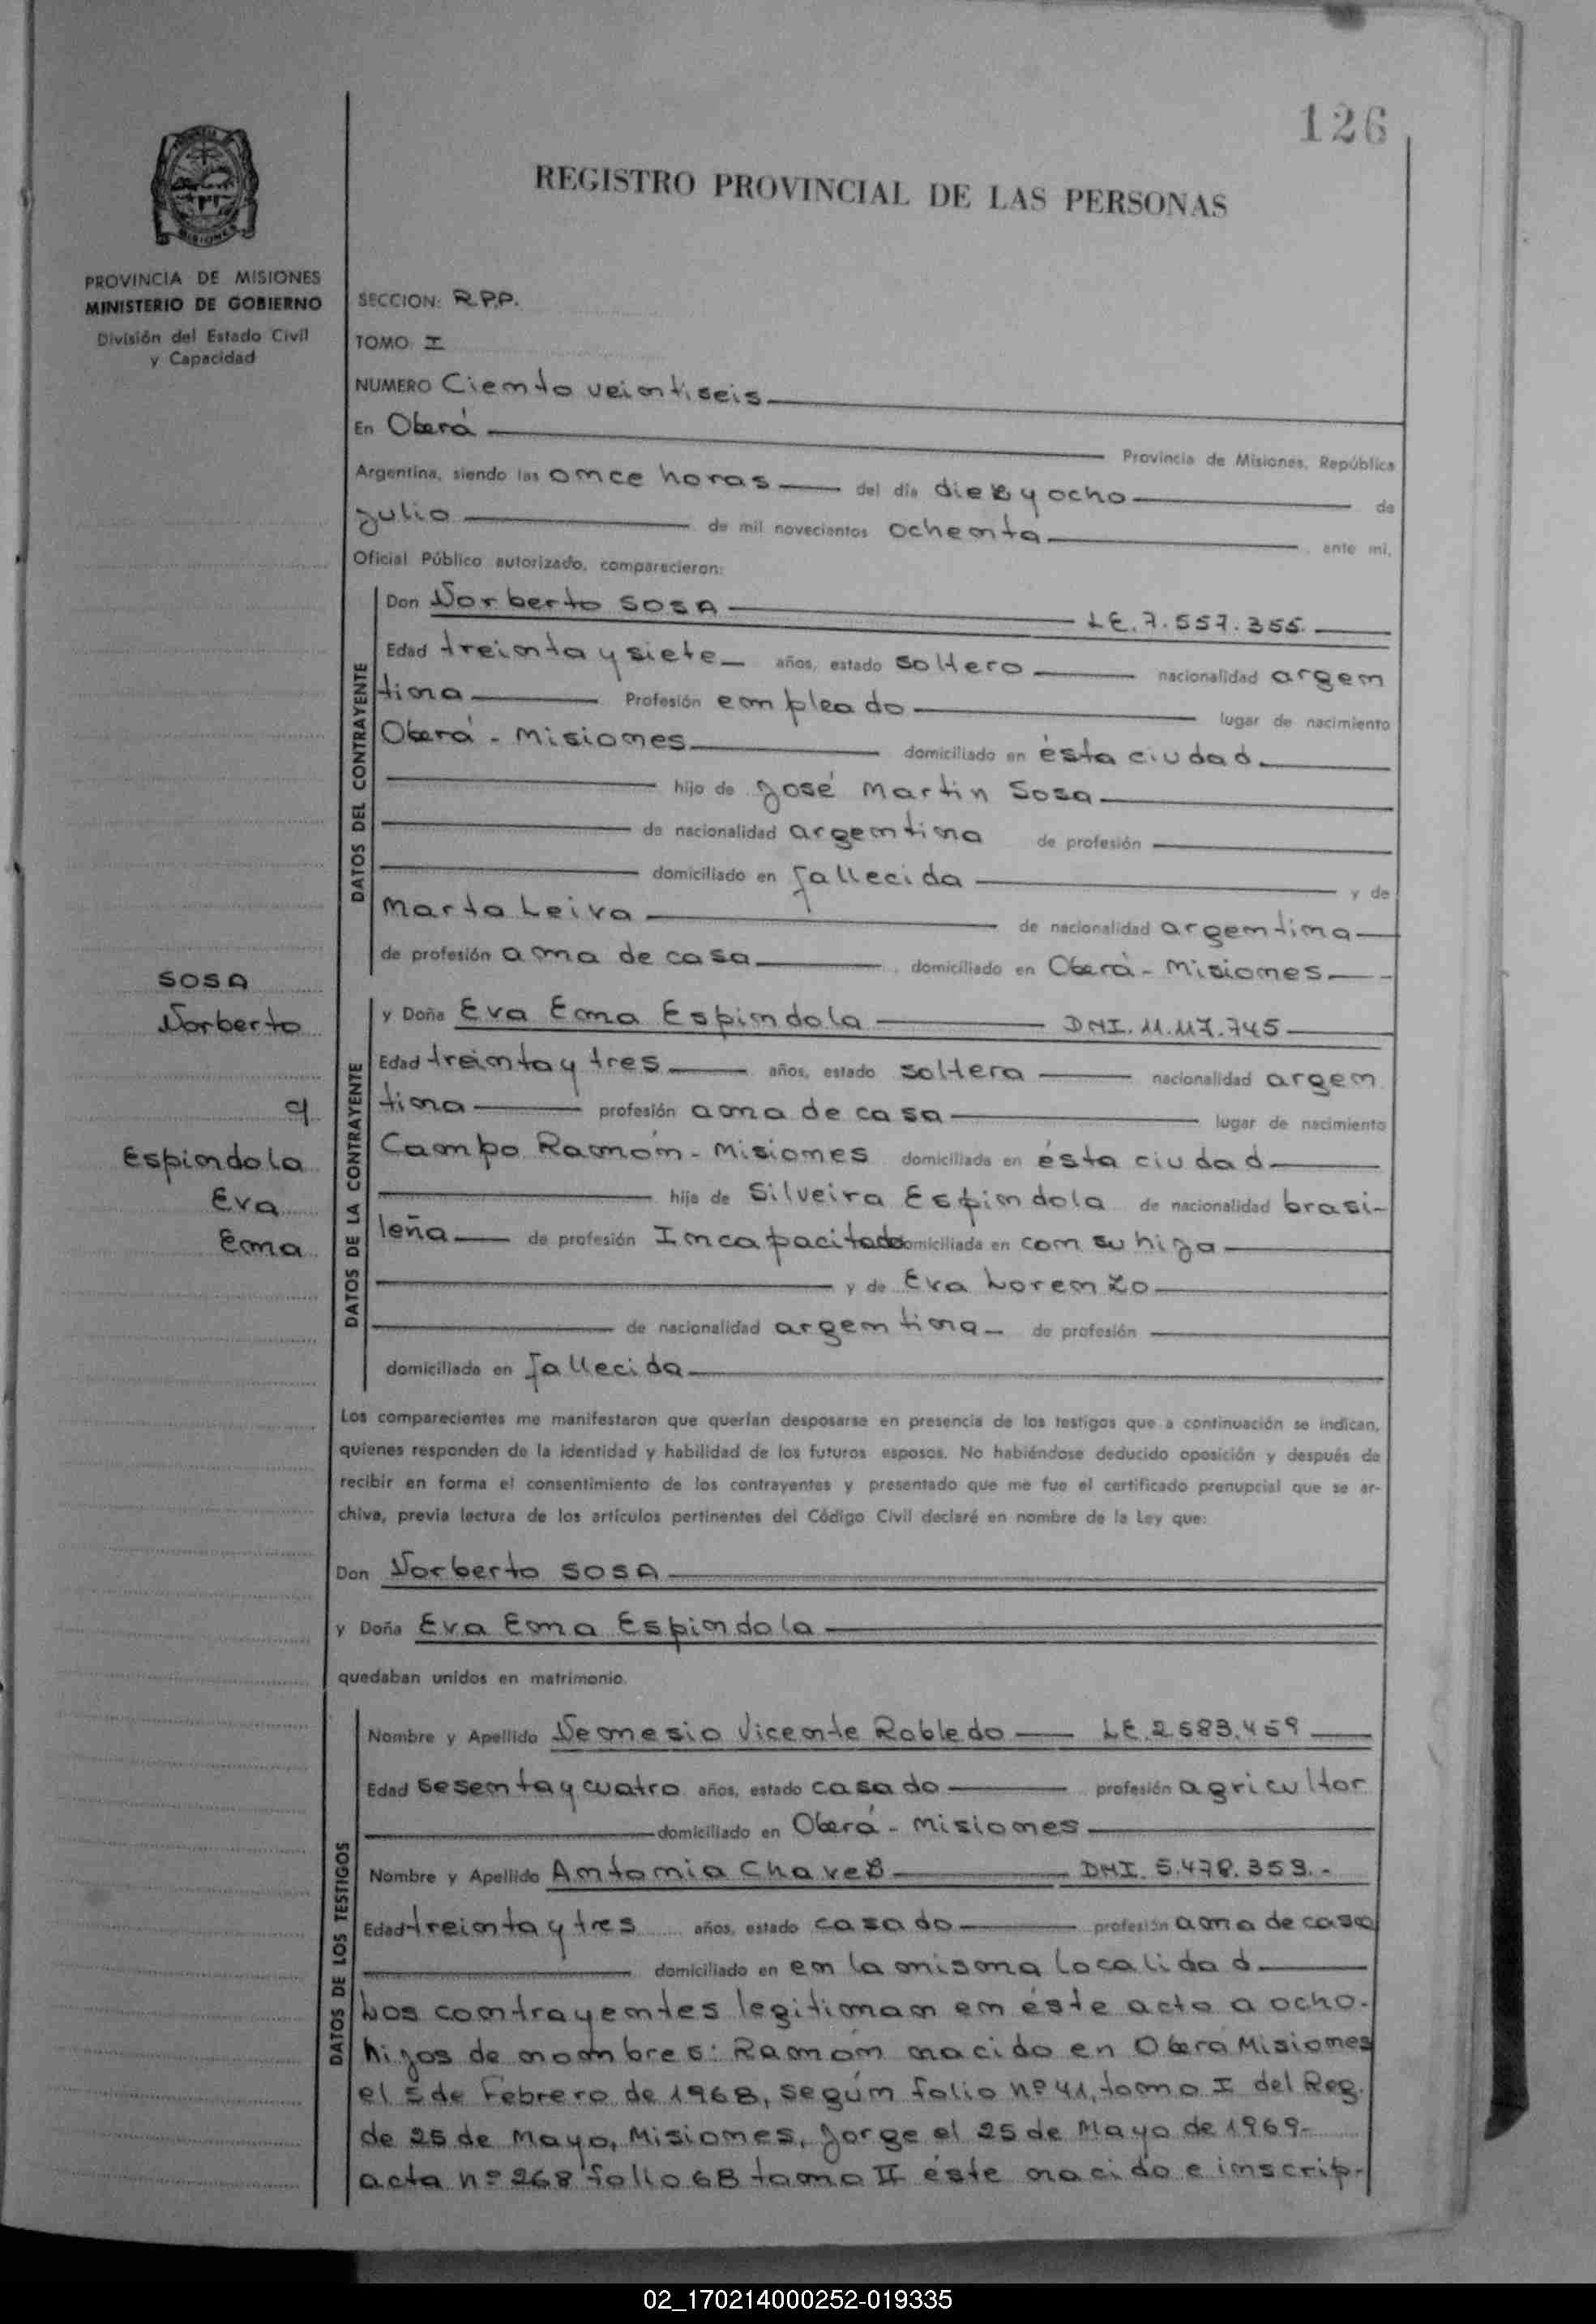 126
REGISTRO PROVINCIAL DE LAS PERSONAS
PROVINCIA DE MISIONES
MINISTERIO DE GOBIERNO
División del Estado Civil
y Capacidad
SECCION: R.P.P.
TOMO I
NUMERO Ciento veintiseis
En Oberá Provincia de Misiones, República
Argentina, siendo las once horas del día diez y ocho de
julio de mil novecientos ochenta ante mi,
Oficial Público autorizado, comparecieron:
DATOS DEL CONTRAYENTE
Don Norberto SOSA LE. 7.557.355
Edad treinta y siete años, estado soltero nacionalidad argen
tina Profesión empleado lugar de nacimiento
Oberá - Misiones domiciliado en ésta ciudad
hijo de José Martin Sosa
de nacionalidad argentina de profesión
domiciliado en fallecida y de
Marta Leiva de nacionalidad argentina
de profesión ama de casa, domiciliado en Oberá - Misiones
SOSA
Norberto
y
Espindola
Eva
Ema
DATOS DE LA CONTRAYENTE
y Doña Eva Ema Espindola DNI. 11.117.745
Edad treinta y tres años, estado soltera nacionalidad argen
tina profesión ama de casa lugar de nacimiento
Campo Ramón - Misiones domiciliada en ésta ciudad
hija de Silveira Espindola de nacionalidad brasi-
leña de profesión Incapacitado domiciliada en con su hija
y de Eva Lorenzo
de nacionalidad argentina de profesión
domiciliada en fallecida
Los comparecientes me manifestaron que querían desposarse en presencia de los testigos que a continuación se indican,
quienes responden de la identidad y habilidad de los futuros esposos. No habiéndose deducido oposición y después de
recibir en forma el consentimiento de los contrayentes y presentado que me fue el certificado prenupcial que se ar-
chiva, previa lectura de los artículos pertinentes del Código Civil declaré en nombre de la Ley que:
Don Norberto SOSA
y Doña Eva Ema Espindola
quedaban unidos en matrimonio.
DATOS DE LOS TESTIGOS
Nombre y Apellido Nemesio Vicente Robledo LE. 2583.459
Edad sesenta y cuatro años, estado casado profesión agricultor
domiciliado en Oberá - Misiones
Nombre y Apellido Antonia Chavez DNI. 5.478.359.-
Edad treinta y tres años, estado casado profesión ama de casa
domiciliado en en la misma localidad
Los contrayentes legitiman en éste acto a ocho-
hijos de nombres: Ramón nacido en Oberá Misiones
el 5 de Febrero de 1968, según folio nº 41, tomo I del Reg.
de 25 de Mayo, Misiones, Jorge el 25 de Mayo de 1969-
acta nº 268 folio 68 tomo II éste nacido e inscrip-
02_170214000252-019335